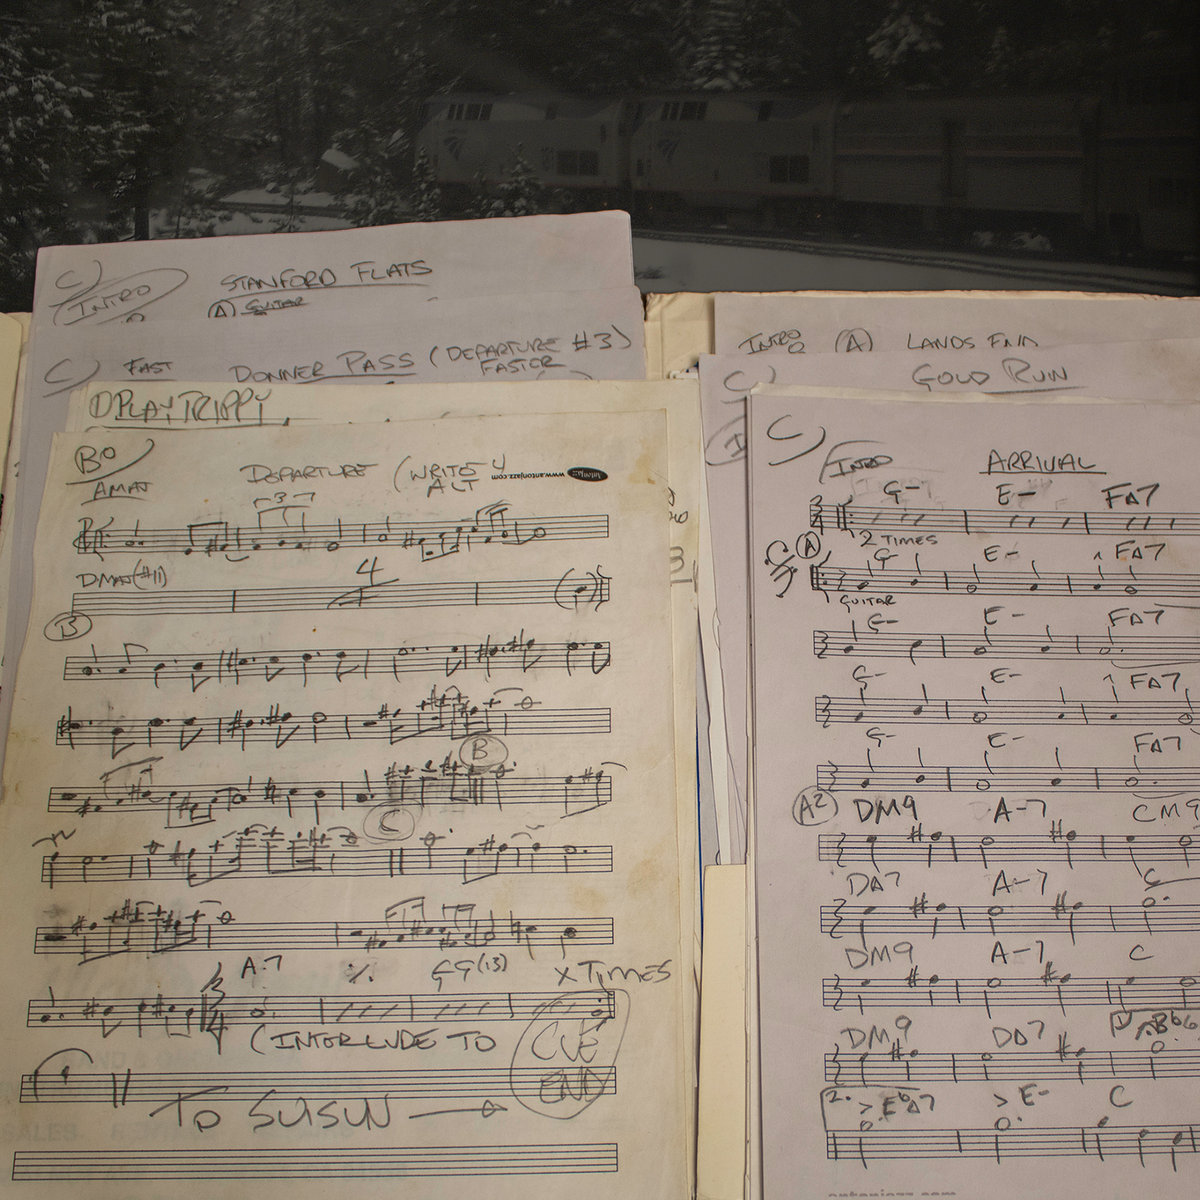 C)
INTRO
STANFORD FLATS
(A) GUITAR
C)
FAST
DONNER PASS (DEPARTURE #3)
FASTER
PLAY TRIPPY
DEPARTURE (WRITE
ALT
www.antonjazz.com
3
DMA7(#11)
4
B
B
C
A-7 ٪ (13) X TIMES
(INTERLUDE TO CUE
END
TO SUISUN
3
INTRO (A) LANDS END
C) GOLD RUN
C)
INTRO ARRIVAL
G- E- F∆7
3
4
2 TIMES
(A) G- E- F∆7
GUITAR
G- E- F∆7
G- E- F∆7
G- E- F∆7
(A2) DM9 A-7 CM9
D∆7 A-7 C
DM9 A-7 C
DM9 D∆7 Bb6
2. > Eb∆7 > E- C
antonjazz.com